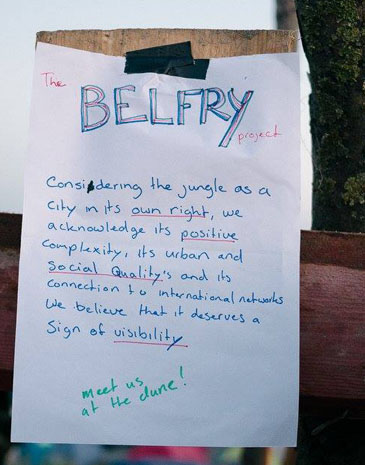 The
BELFRY
project
Considering the jungle as a
city in its own right, we
acknowledge its positive
complexity, its urban and
Social Quality's and its
connection to international networks
We believe that it deserves a
Sign of visibility
meet us
at the dune!